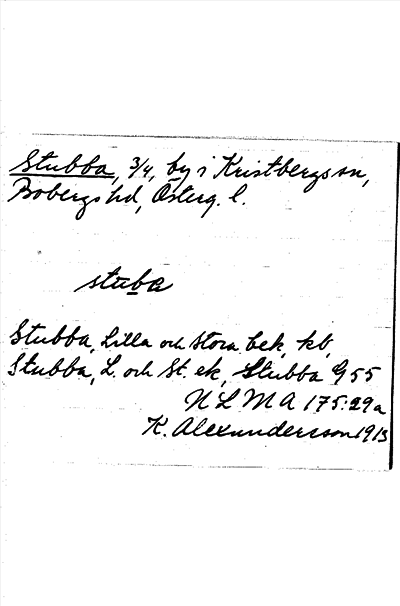 Stubba, 3/4, by i Kristbergs sn,
Bobergs hd, Österg. l.
stuba
Stubba, Lilla och Stora bek, kb,
Stubba, L. och St. ek, Stubba G 55
NLMA 175:29a
K. Alexandersson 1913